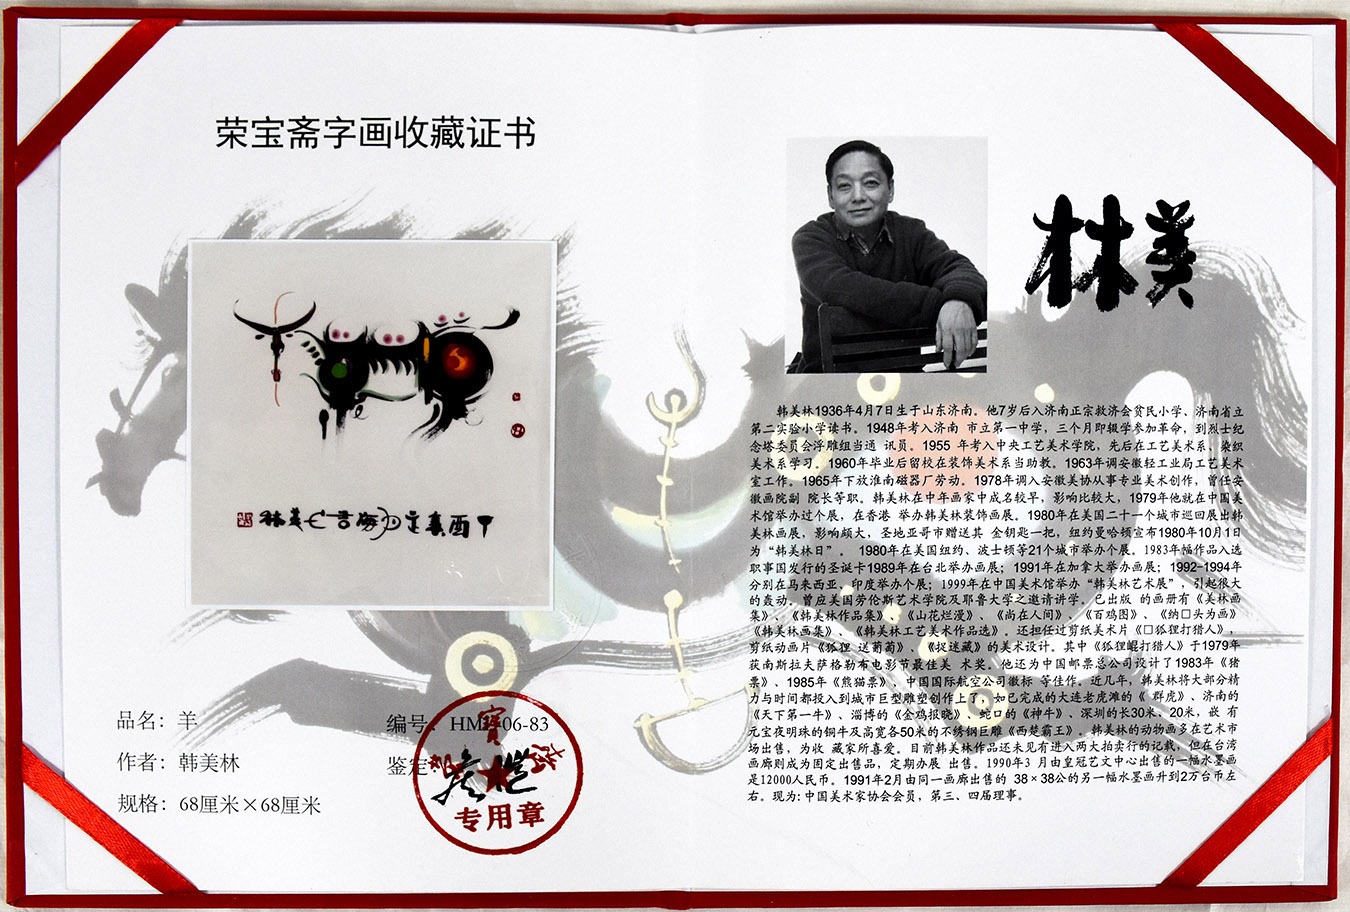 荣宝斋字画收藏证书
甲酉真定
美林
品名：羊
作者：韩美林
规格：68厘米×68厘米
编号：HML06-83
鉴定
寶
专用章
林美
韩美林1936年4月7日生于山东济南。他7岁后入济南正宗救济会贫民小学、济南省立
第二实验小学读书。1948年考入济南 市立第一中学，三个月即辍学参加革命，到烈士纪
念塔委员会浮雕组当通 讯员。1955 年考入中央工艺美术学院，先后在工艺美术系，染织
美术系学习。1960年毕业后留校在装饰美术系当助教。1963年调安徽轻工业局工艺美术
室工作。1965年下放淮南磁器厂劳动。1978年调入安徽美协从事专业美术创作，曾任安
徽画院副 院长等职。韩美林在中年画家中成名较早，影响比较大，1979年他就在中国美
术馆举办过个展，在香港 举办韩美林装饰画展。1980年在美国二十一个城市巡回展出韩
美林画展，影响颇大，圣地亚哥市赠送其 金钥匙一把，纽约曼哈顿宣布1980年10月1日
为“韩美林日”。 1980年在美国纽约、波士顿等21个城市举办个展。1983年幅作品入选
职事国发行的圣诞卡1989年在台北举办画展；1991年在加拿大举办画展；1992-1994年
分别在马来西亚、印度举办个展；1999年在中国美术馆举办“韩美林艺术展”，引起很大
的轰动。曾应美国劳伦斯艺术学院及耶鲁大学之邀请讲学。已出版 的画册有《美林画
集》、《韩美林作品集》、《山花烂漫》、《尚在人间》、《百鸡图》、《纳□头为画》
《韩美林画集》、《韩美林工艺美术作品选》。还担任过剪纸美术片《□狐狸打猎人》，
剪纸动画片《狐狸 送葡萄》、《捉迷藏》的美术设计。其中《狐狸崐打猎人》于1979年
获南斯拉夫萨格勒布电影节最佳美 术奖。他还为中国邮票总公司设计了1983年《猪
票》、1985年《熊猫票》，中国国际航空公司徽标 等佳作。近几年，韩美林将大部分精
力与时间都投入到城市巨型雕塑创作上了，如已完成的大连老虎滩的《 群虎》、济南的
《天下第一牛》、淄博的《金鸡报晓》、蛇口的《神牛》、深圳的长30米、20米，嵌 有
元宝夜明珠的铜牛及高宽各50米的不锈钢巨雕《西楚霸王》。韩美林的动物画多在艺术市
场出售，为收 藏家所喜爱。目前韩美林作品还未见有进入两大拍卖行的记载，但在台湾
画廊则成为固定出售品，定期办展 出售。1990年3 月由皇冠艺文中心出售的一幅水墨画
是12000人民币。1991年2月由同一画廊出售的 38×38公的另一幅水墨画升到2万台币左
右。现为：中国美术家协会会员，第三、四届理事。